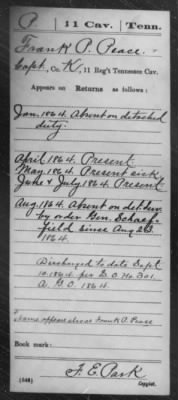 P | 11 Cav. | Tenn.
Frank P. Pease.
Capt., Co. K, 11 Reg't Tennessee Cav.
Appears on Returns as follows:
Jan. 1864. Absent on detached
duty.
April 1864. Present
May 1864. Present sick
June & July 1864. Present
Aug. 1864. Absent on det. duty
by order Gen. Schof-
field since Aug 23
1864.
Discharged to date Sept
10. 1864. per S.O. No. 301.
A.G.O. 1864.
Name appears also as Frank A. Pease
Book mark:
(546)
F. E. Park
Copyist.